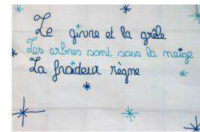 Le givre et la grêle
Les arbres sont sous la neige
La froideur règne